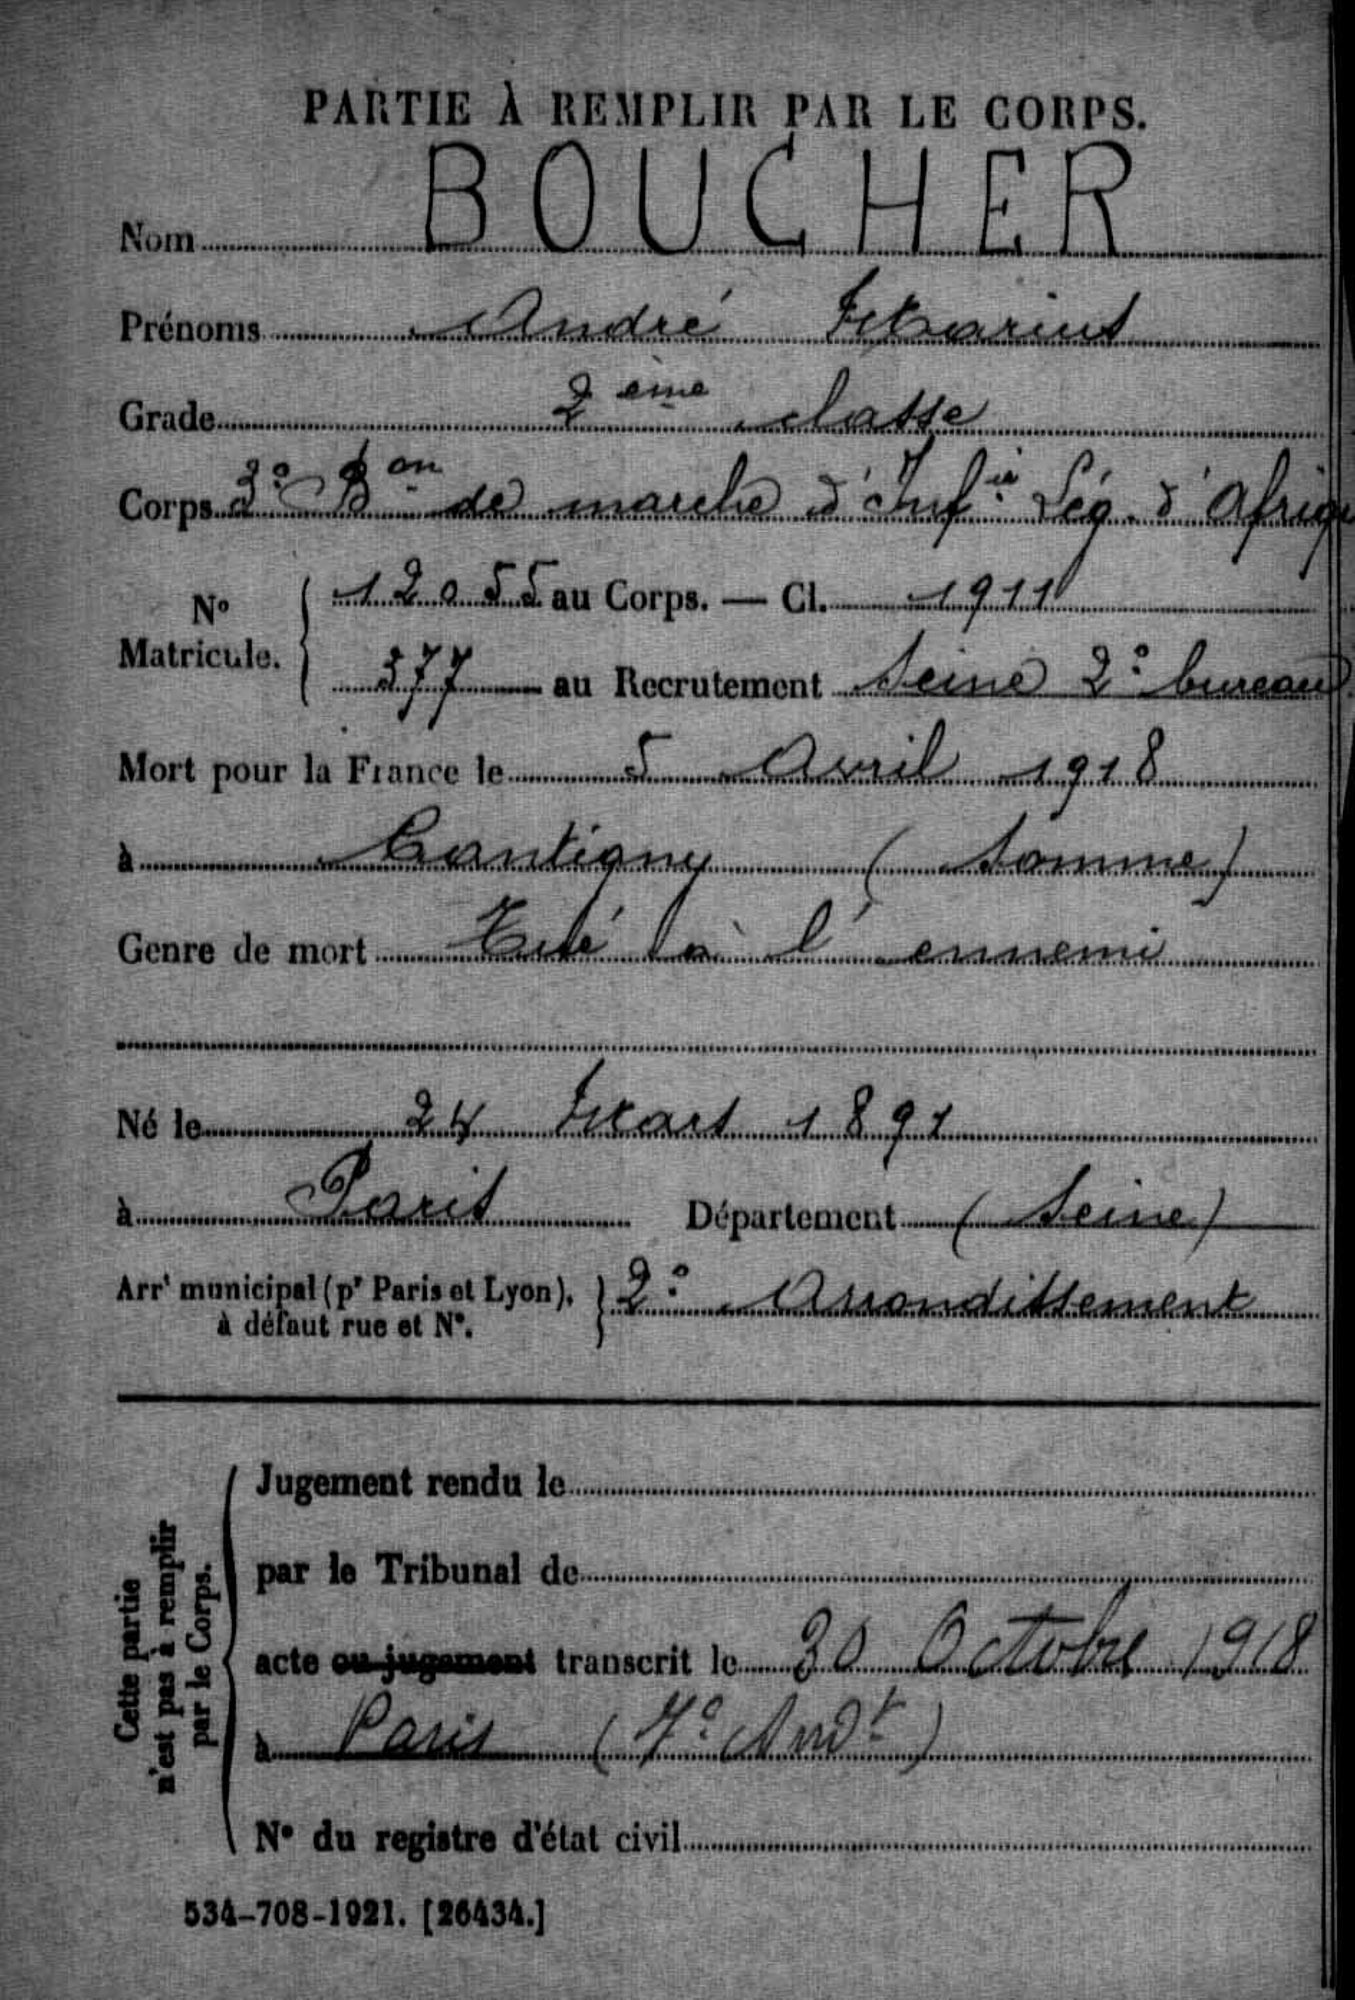 PARTIE À REMPLIR PAR LE CORPS.
Nom BOUCHER
Prénoms André Marius
Grade 2ème classe
Corps 3e Bon de marche d'Infie Lég. d'Afriq
No Matricule. 12055 au Corps. — Cl. 1911
377 au Recrutement Seine 2e bureau
Mort pour la France le 5 Avril 1918
à Cantigny (Somme)
Genre de mort Tué à l'ennemi
Né le 24 Mars 1891
à Paris Département (Seine)
Arrt municipal (pr Paris et Lyon), à défaut rue et No. 2e Arrondissement
Cette partie n'est pas à remplir par le Corps.
Jugement rendu le
par le Tribunal de
acte ou jugement transcrit le 30 Octobre 1918
à Paris (7e Arrdt)
No du registre d'état civil
534-708-1921. [26434.]